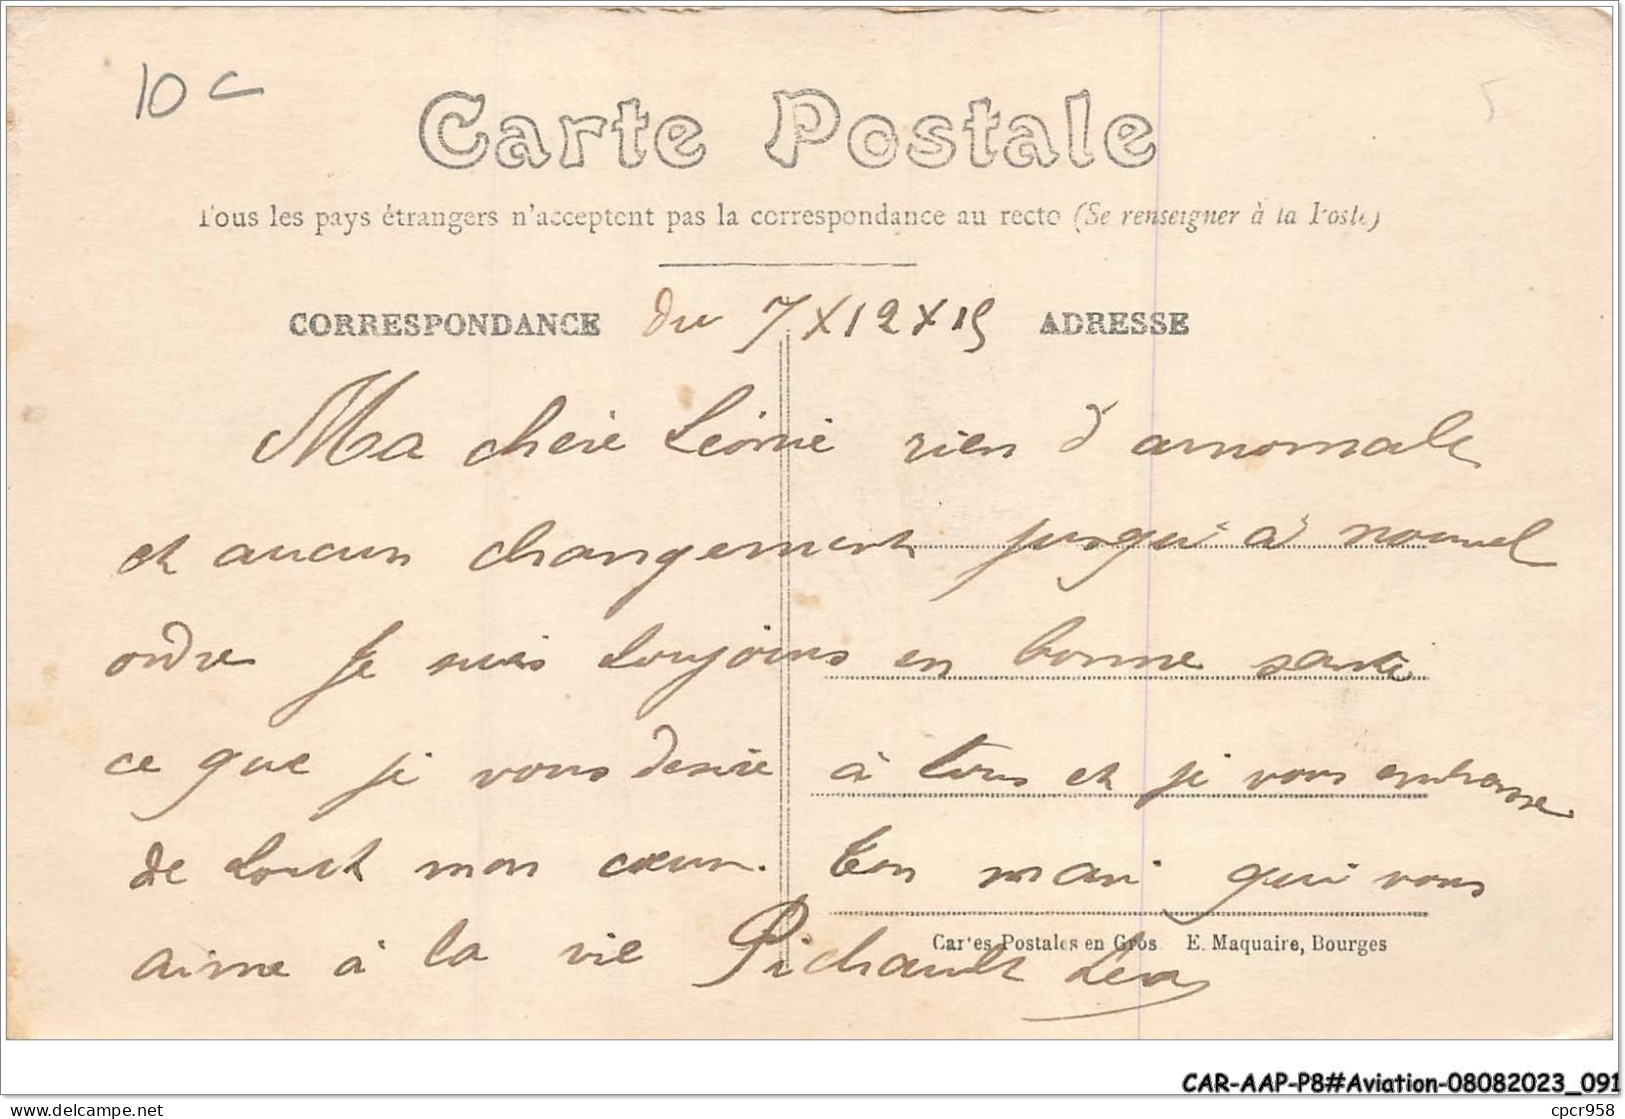 10 c
5
Carte Postale
Tous les pays étrangers n'acceptent pas la correspondance au recto (Se renseigner à la Poste)
CORRESPONDANCE du 7 X 12 X 15 ADRESSE
Ma chère Léonie rien d'arnomale
et aucun changement jusqu'à nouvel
ordre Je suis toujours en bonne santé
ce que je vous desire à tous et je vous embrasse
de tout mon cœur. Ton mari qui vous
aime à la vie Pichault Léon
Cartes Postales en Gros E. Maquaire, Bourges
CAR-AAP-P8#Aviation-08082023_091
delcampe.net
cpcr958